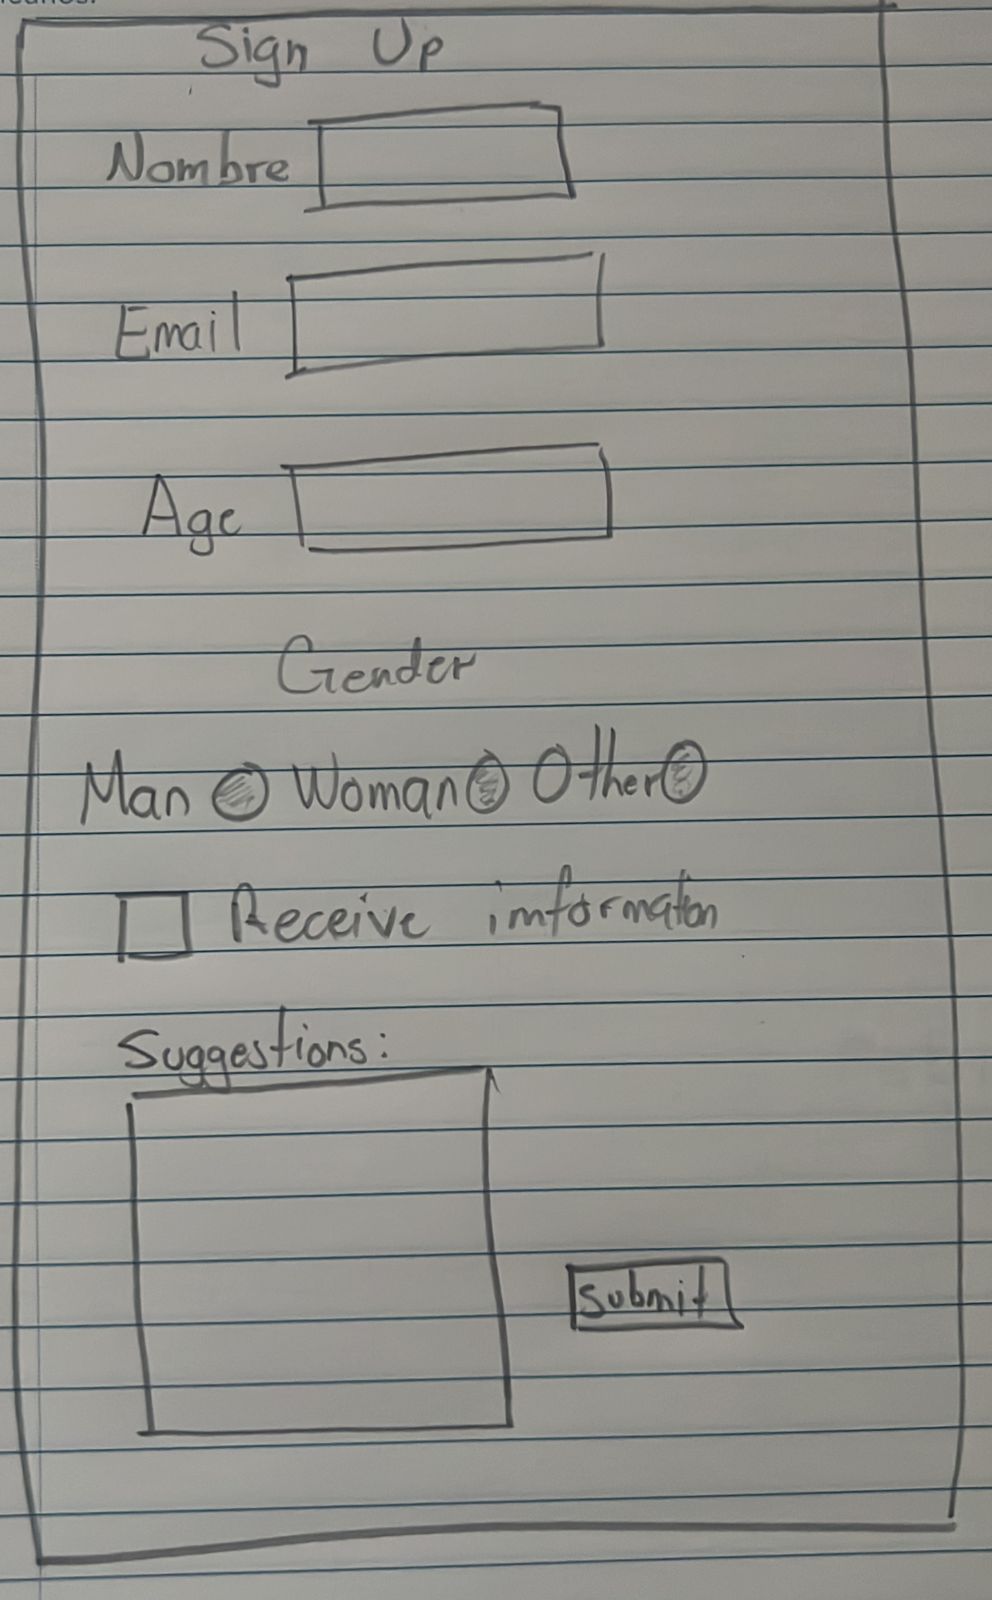 Sign Up
Nombre
Email
Age
Gender
Man Woman Other
Receive imformation
Suggestions:
Submit